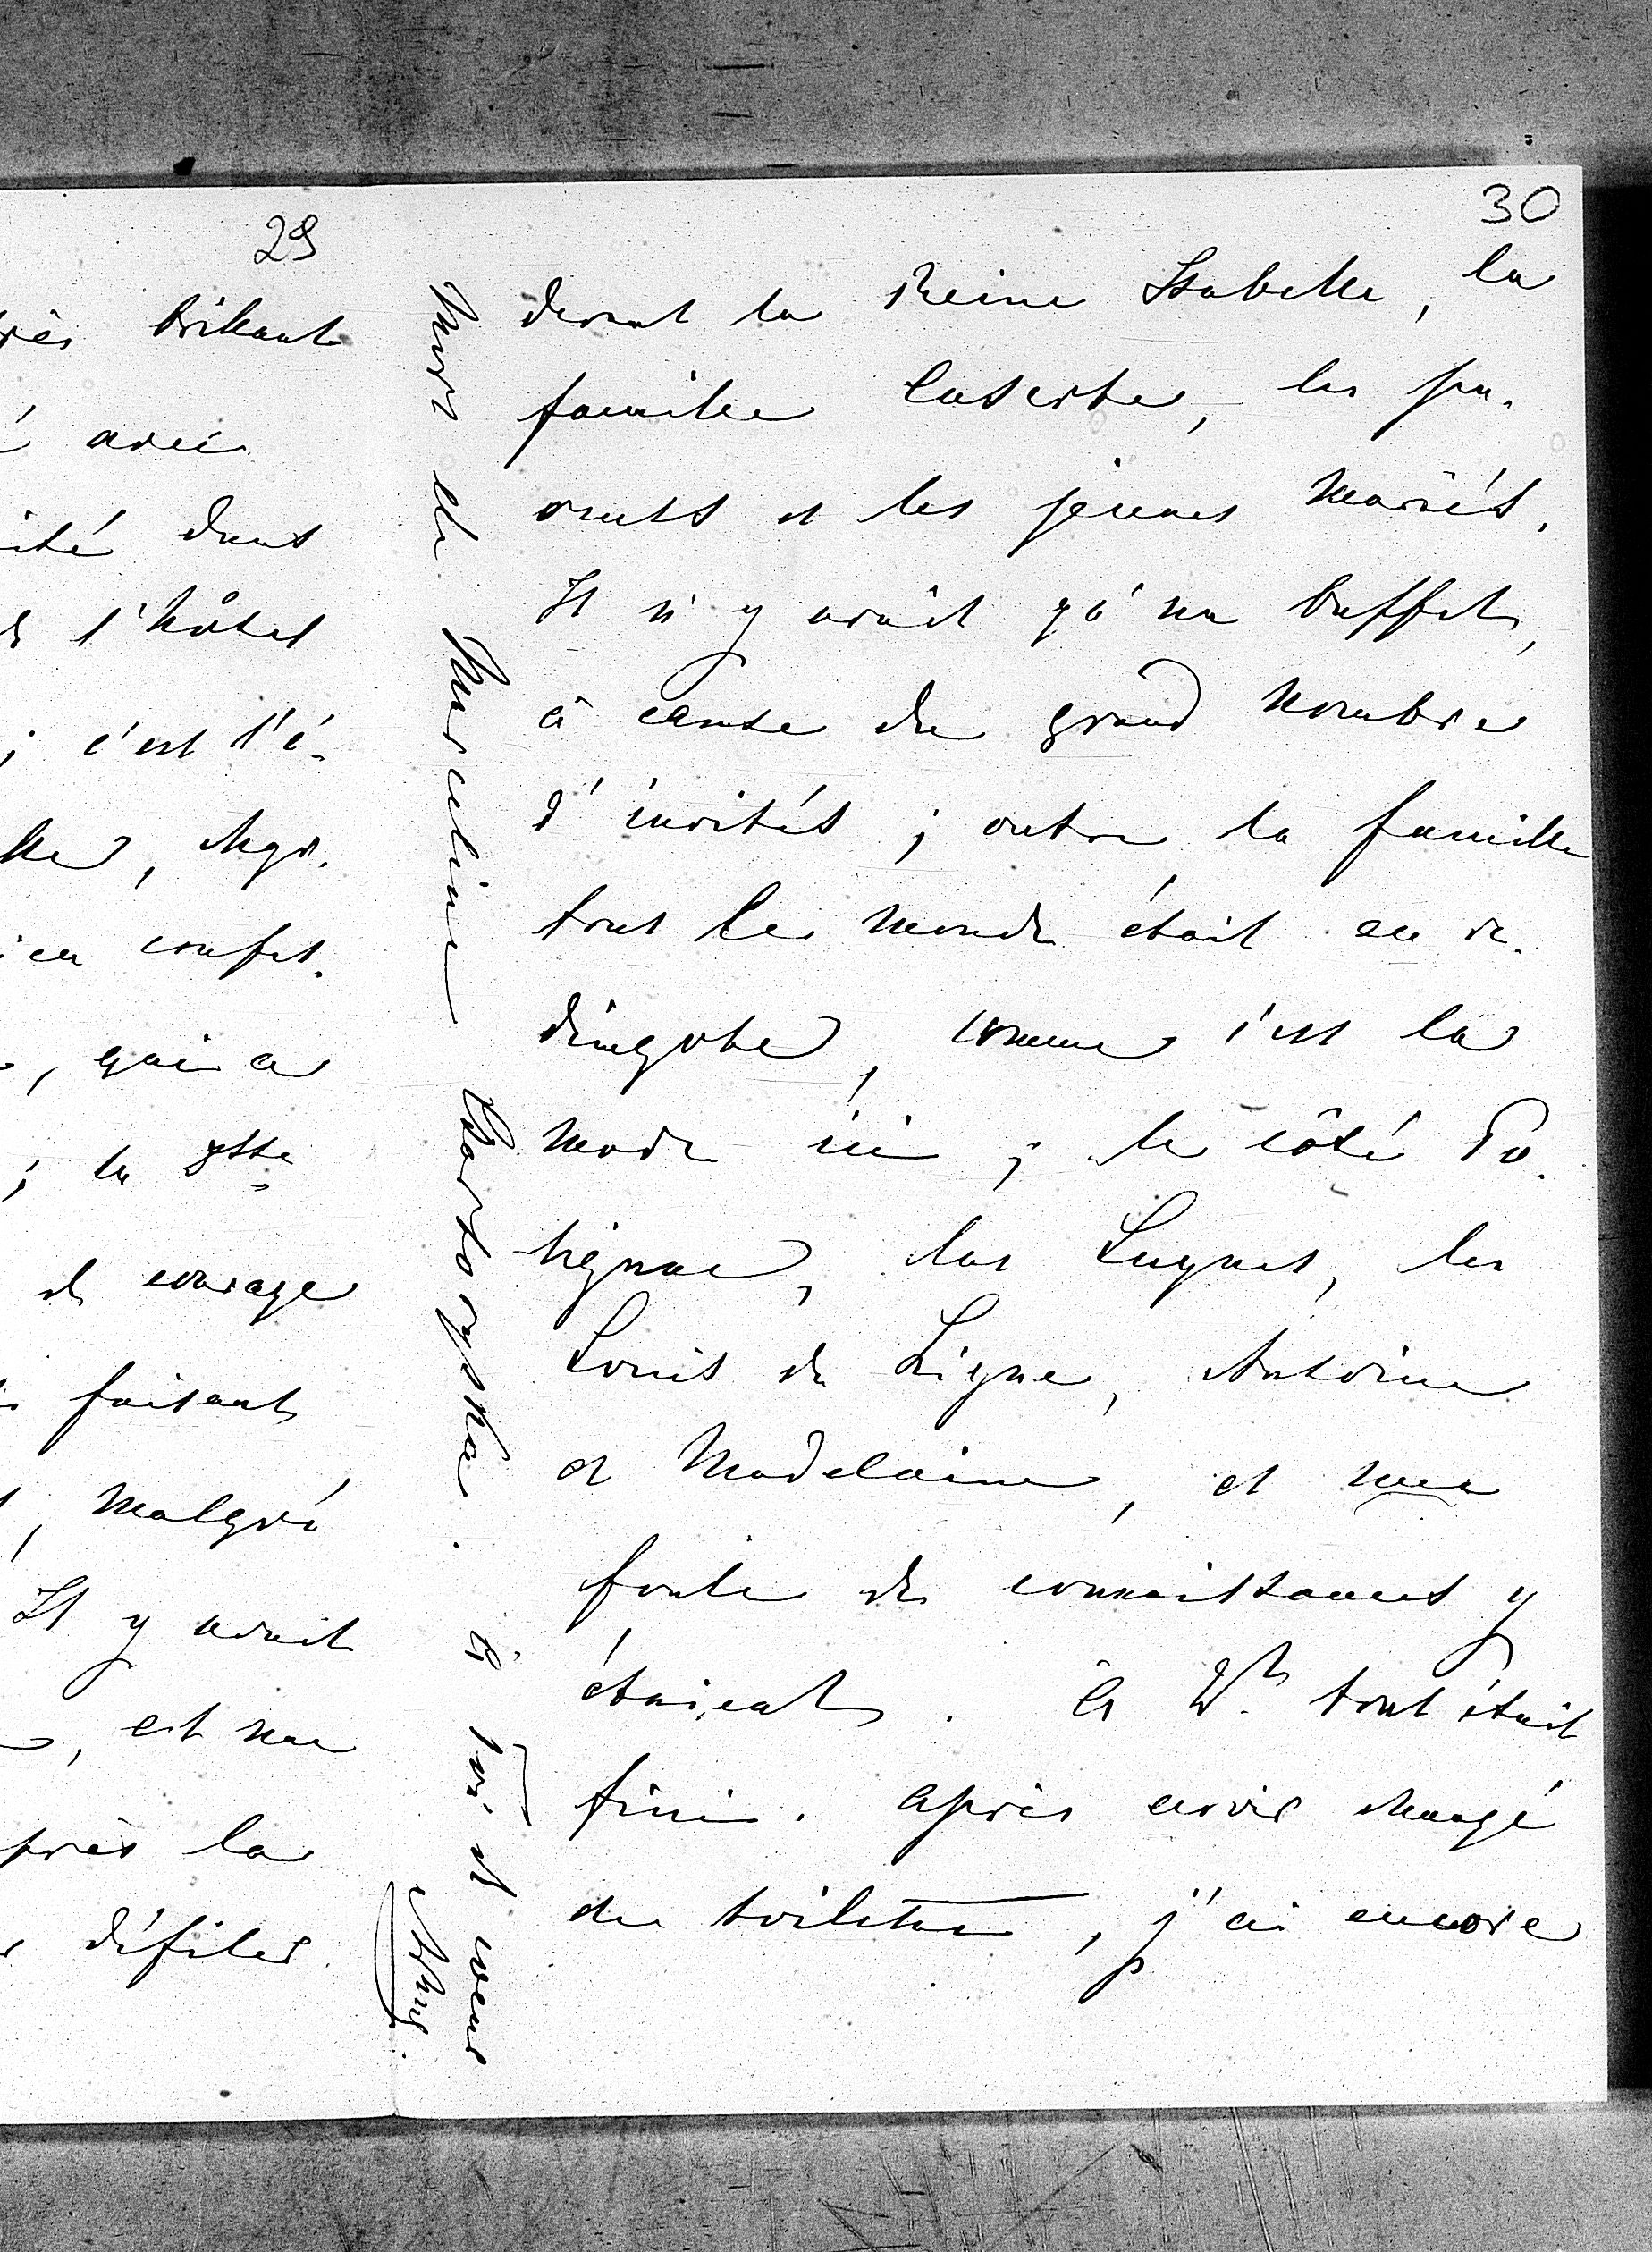 29
très brilliant
avec
ité dans
l'hôtel
; c'est l'é-
lle, Mgr.
confes.
, qui a
; la Psse
de courage
faisant
, malgré
Il y avait
, est une
près la
défiler.
30
devant la Reine Isabelle, la
famille Caserte, les pa-
rents et les jeunes mariés.
Il n'y avait qu'un buffet,
à cause du grand nombre
d'invités ; outre la famille
tout le monde était en re-
dingote, comme c'est la
mode ici ; le côté Po-
lignac, les Luynes, les
Louis de Ligne, Antoine
et Madelaine, et une
foule de connaissances y
étaient. à 2h. tout était
fini. après avoir changé
de toilette, j'ai encore
de Marceline Czartoryska. à toi de coeur